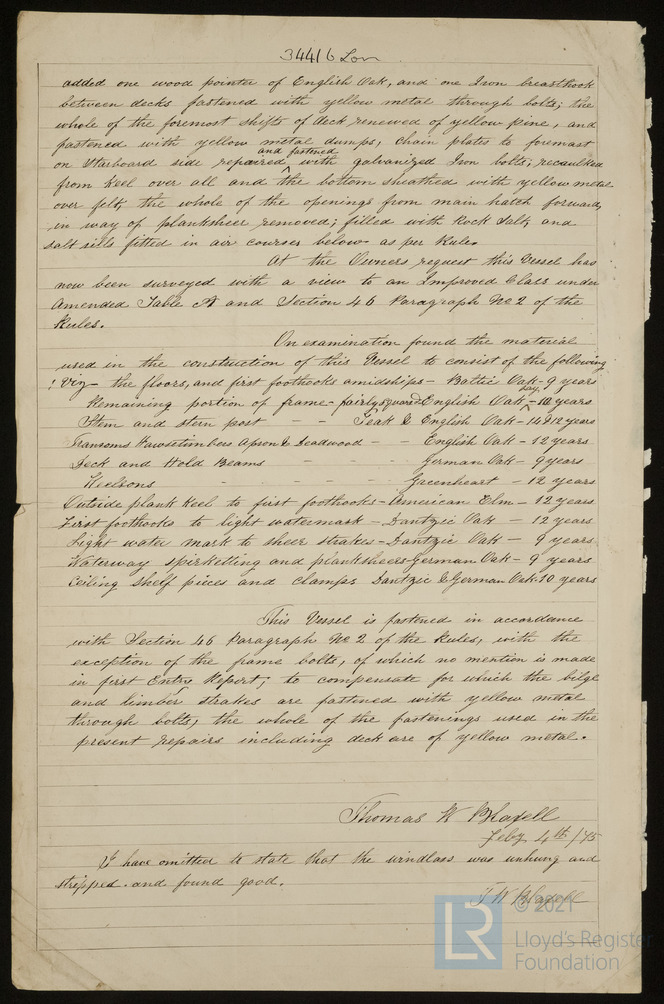 34416 Lon
added one wood pointer of English Oak, and one Iron breasthook
between decks fastened with yellow metal through bolts; the
whole of the foremost shifts of deck renewed of yellow pine, and
fastened with yellow metal dumps, chain plates to foremast
on Starboard side repaired and fastened with galvanized Iron bolts; recaulked
from Keel over all and the bottom sheathed with yellow metal
over felt, the whole of the openings from main hatch forward,
in way of planksheer removed; filled with Rock Salt, and
salt sills fitted in air courses below as per Rule.
At the Owners request this Vessel has
now been surveyed with a view to an Improved Class under
Amended Table A and Section 46 Paragraph No 2 of the
Rules.
On examination found the material
used in the construction of this Vessel to consist of the following
: Viz - the floors, and first foothooks amidships - Baltic Oak - 9 years
Remaining portion of frame - fairly squared English Oak - say 10 years
Stem and stern post - - Teak & English Oak - 14 & 12 years
Transoms Hawsetimbers Apron & Deadwood - - English Oak - 12 years
Deck and Hold Beams - - - - German Oak - 9 years
Keelsons - - - - - Greenheart - 12 years
Outside plank Keel to first foothooks - American Elm - 12 years
First foothooks to light watermark - Dantzic Oak - 12 years
Light water mark to sheer strakes - Dantzic Oak - 9 years
Waterway spirketting and planksheers German Oak - 9 years
Ceiling shelf pieces and clamps Dantzic & German Oak - 10 years
This Vessel is fastened in accordance
with Section 46 Paragraph No 2 of the Rules, with the
exception of the frame bolts, of which no mention is made
in first Entry Report; to compensate for which the bilge
and limber strakes are fastened with yellow metal
through bolts, the whole of the fastenings used in the
present repairs including deck are of yellow metal.
Thomas W Blaxell
Feby 4th /75
I have omitted to state that the windlass was unhung and
stripped and found good.
T W Blaxell
LR © 2021
Lloyd's Register
Foundation